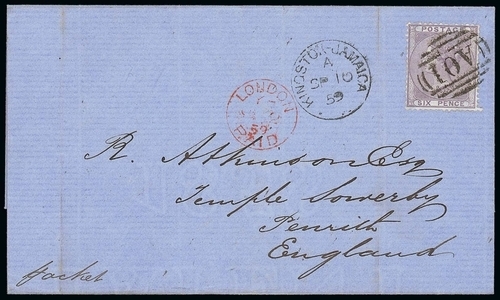 POSTAGE
A01
SIX PENCE
KINGSTON-JAMAICA
A
SP 10
59
LONDON
59
PAID
R. Atkinson Esq
Temple Sowerby
Penrith
England
packet